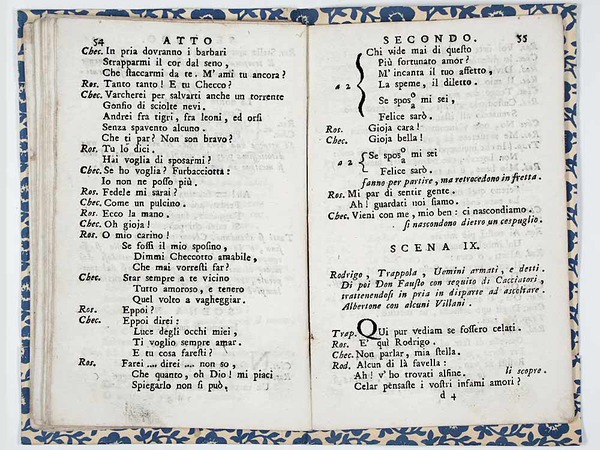 54 ATTO
Chec. In pria dovranno i barbari
Strapparmi il cor dal seno,
Che staccarmi da te. M'ami tu ancora?
Ros. Tanto tanto! E tu Checco?
Chec. Varcherei per salvarti anche un torrente
Gonfio di sciolte nevi.
Andrei fra tigri, fra leoni, ed orsi
Senza spavento alcuno.
Che ti par? Non son bravo?
Ros. Tu lo dici.
Hai voglia di sposarmi?
Chec. Se ho voglia? Furbacciotta:
Io non ne posso più.
Ros. Fedele mi sarai?
Chec. Come un pulcino.
Ros. Ecco la mano.
Chec. Oh gioja!
Ros. O mio carino!
Se fossi il mio sposino,
Dimmi Checcotto amabile,
Che mai vorresti far?
Chec. Star sempre a te vicino
Tutto amoroso, e tenero
Quel volto a vagheggiar.
Ros. Eppoi?
Chec. Eppoi direi:
Luce degli occhi miei,
Ti voglio sempre amar.
E tu cosa faresti?
Ros. Farei .... direi .... non so,
Che quanto, oh Dio! mi piaci
Spiegarlo non si può,
SECONDO. 55
Chi vide mai di questo
Più fortunato amor?
M'incanta il tuo affetto,
a 2 La speme, il diletto.
Se sposo/a mi sei,
Felice sarò.
Ros. Gioja cara!
Chec. Gioja bella!
a 2 Se sposo/a mi sei
Felice sarò.
fanno per partire, ma retrocedono in fretta.
Ros. Mi par di sentir gente.
Ah! guardati noi siamo.
Chec. Vieni con me, mio ben: ci nascondiamo.
si nascondono dietro un cespuglio.
SCENA IX.
Rodrigo, Trappola, Uomini armati, e detti.
Di poi Don Fausto con seguito di Cacciatori,
trattenendosi in pria in disparte ad ascoltare.
Albertone con alcuni Villani.
Trap. Qui pur vediam se fossero celati.
Ros. E' quì Rodrigo.
Chec. Non parlar, mia stella.
Rod. Alcun di là favella:
Ah! v'ho trovati alfine. li scopre.
Celar pensaste i vostri infami amori?
d 4